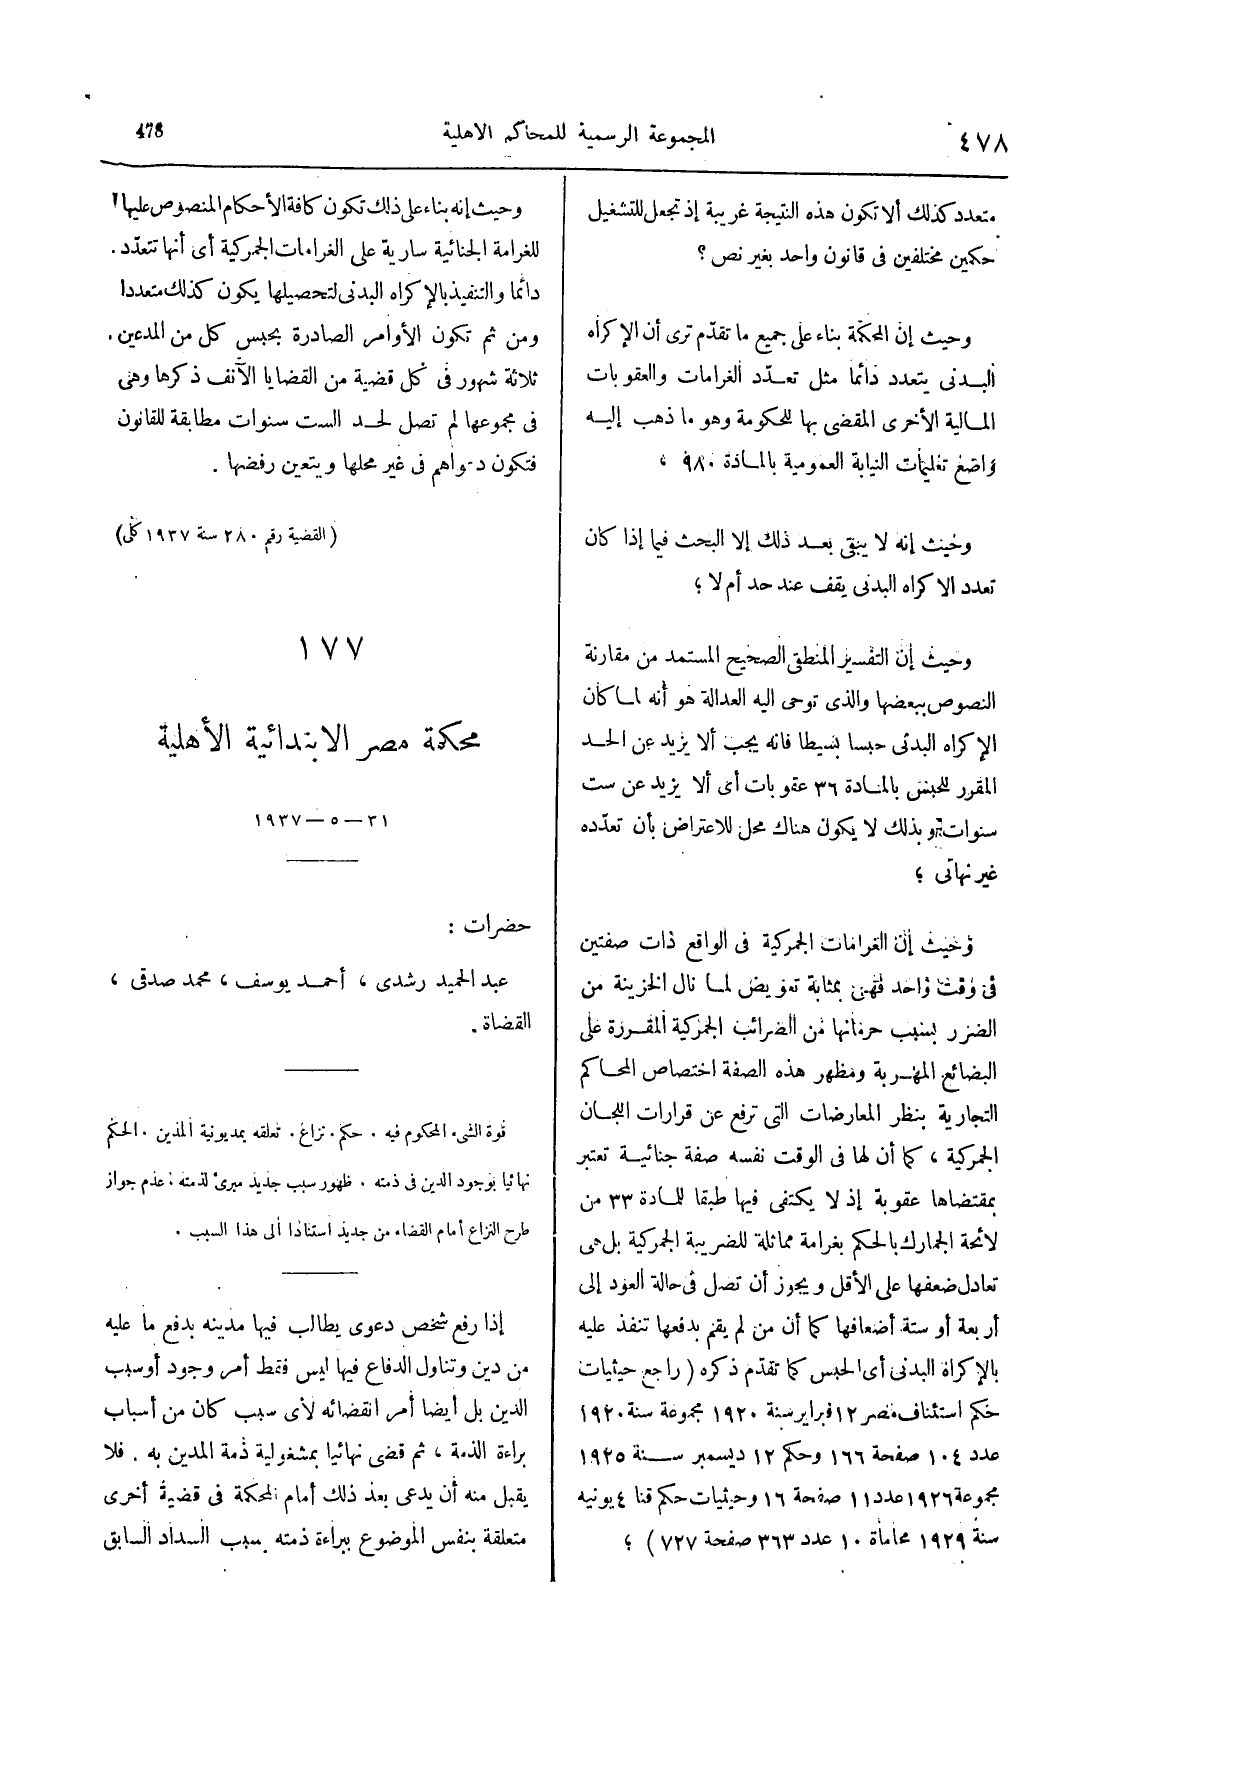 ٤٧٨
المجموعة الرسمية للمحاكم الاهلية
478
متعدد كذلك ألا تكون هذه النتيجة غريبة إذ تجعل للتشغيل
حكمين مختلفين فى قانون واحد بغير نص ؟
وحيث إن المحكمة بناء على جميع ما تقدّم ترى أن الإكراه
البدنى يتعدد دائما مثل تعدّد الغرامات والعقوبات
المالية الأخرى المقضى بها للحكومة وهو ما ذهب إليه
واضع تعليمات النيابة العمومية بالمادة ٩٨٠ ،
وحيث إنه لا يبقى بعد ذلك إلا البحث فيما إذا كان
تعدد الاكراه البدنى يقف عند حد أم لا ؛
وحيث إن التفسير المنطقى الصحيح المستمد من مقارنة
النصوص ببعضها والذى توحى اليه العدالة هو أنه لما كان
الإكراه البدنى حبسا بسيطا فانه يجب ألا يزيد عن الحد
المقرر للحبس بالمادة ٣٦ عقوبات أى ألا يزيد عن ست
سنوات وبذلك لا يكون هناك محل للاعتراض بأن تعدّده
غير نهائى ؛
وحيث إن الغرامات الجمركية فى الواقع ذات صفتين
فى وقت واحد فهى بمثابة تعويض لما نال الخزينة من
الضرر بسبب حرمانها من الضرائب الجمركية المقررة على
البضائع المهربة ومظهر هذه الصفة اختصاص المحاكم
التجارية بنظر المعارضات التى ترفع عن قرارات اللجان
الجمركية ، كما أن لها فى الوقت نفسه صفة جنائية تعتبر
بمقتضاها عقوبة إذ لا يكتفى فيها طبقا للمادة ٣٣ من
لائحة الجمارك بالحكم بغرامة مماثلة للضريبة الجمركية بل هى
تعادل ضعفها على الأقل ويجوز أن تصل فى حالة العود إلى
أربعة أو ستة أضعافها كما أن من لم يقم بدفعها تنفذ عليه
بالإكراه البدنى أى الحبس كما تقدّم ذكره (راجع حيثيات
حكم استئناف مصر ١٢ فبراير سنة ١٩٢٠ مجموعة سنة ١٩٢٠
عدد ١٠٤ صفحة ١٦٦ وحكم ١٢ ديسمبر سنة ١٩٢٥
مجموعة ١٩٢٦ عدد ١١ صفحة ١٦ وحيثيات حكم قنا ٤ يونيه
سنة ١٩٢٩ محاماة ١٠ عدد ٣٦٣ صفحة ٧٢٧) ؛
وحيث إنه بناء على ذلك تكون كافة الأحكام المنصوص عليها
للغرامة الجنائية سارية على الغرامات الجمركية أى أنها تتعدّد
دائما والتنفيذ بالإكراه البدنى لتحصيلها يكون كذلك متعددا
ومن ثم تكون الأوامر الصادرة بحبس كل من المدعين
ثلاثة شهور فى كل قضية من القضايا الآنف ذكرها وهى
فى مجموعها لم تصل لحد الست سنوات مطابقة للقانون
فتكون دعواهم فى غير محلها ويتعين رفضها .
(القضية رقم ٢٨٠ سنة ١٩٣٧ كلى)
١٧٧
محكمة مصر الابتدائية الأهلية
٣١ — ٥ — ١٩٣٧
حضرات :
عبد الحميد رشدى ، أحمد يوسف ، محمد صدقى ،
القضاة .
قوة الشىء المحكوم فيه . حكم . نزاع . تعلقه بمديونية المدين . الحكم
نهائيا بوجود الدين فى ذمته . ظهور سبب جديد مبرئ لذمته : عدم جواز
طرح النزاع أمام القضاء من جديد استنادا إلى هذا السبب .
إذا رفع شخص دعوى يطالب فيها مدينه بدفع ما عليه
من دين وتناول الدفاع فيها ليس فقط أمر وجود أو سبب
الدين بل أيضا أمر انقضائه لأى سبب كان من أسباب
براءة الذمة ، ثم قضى نهائيا بمشغولية ذمة المدين به . فلا
يقبل منه أن يدعى بعد ذلك أمام المحكمة فى قضية أخرى
متعلقة بنفس الموضوع ببراءة ذمته بسبب السداد السابق